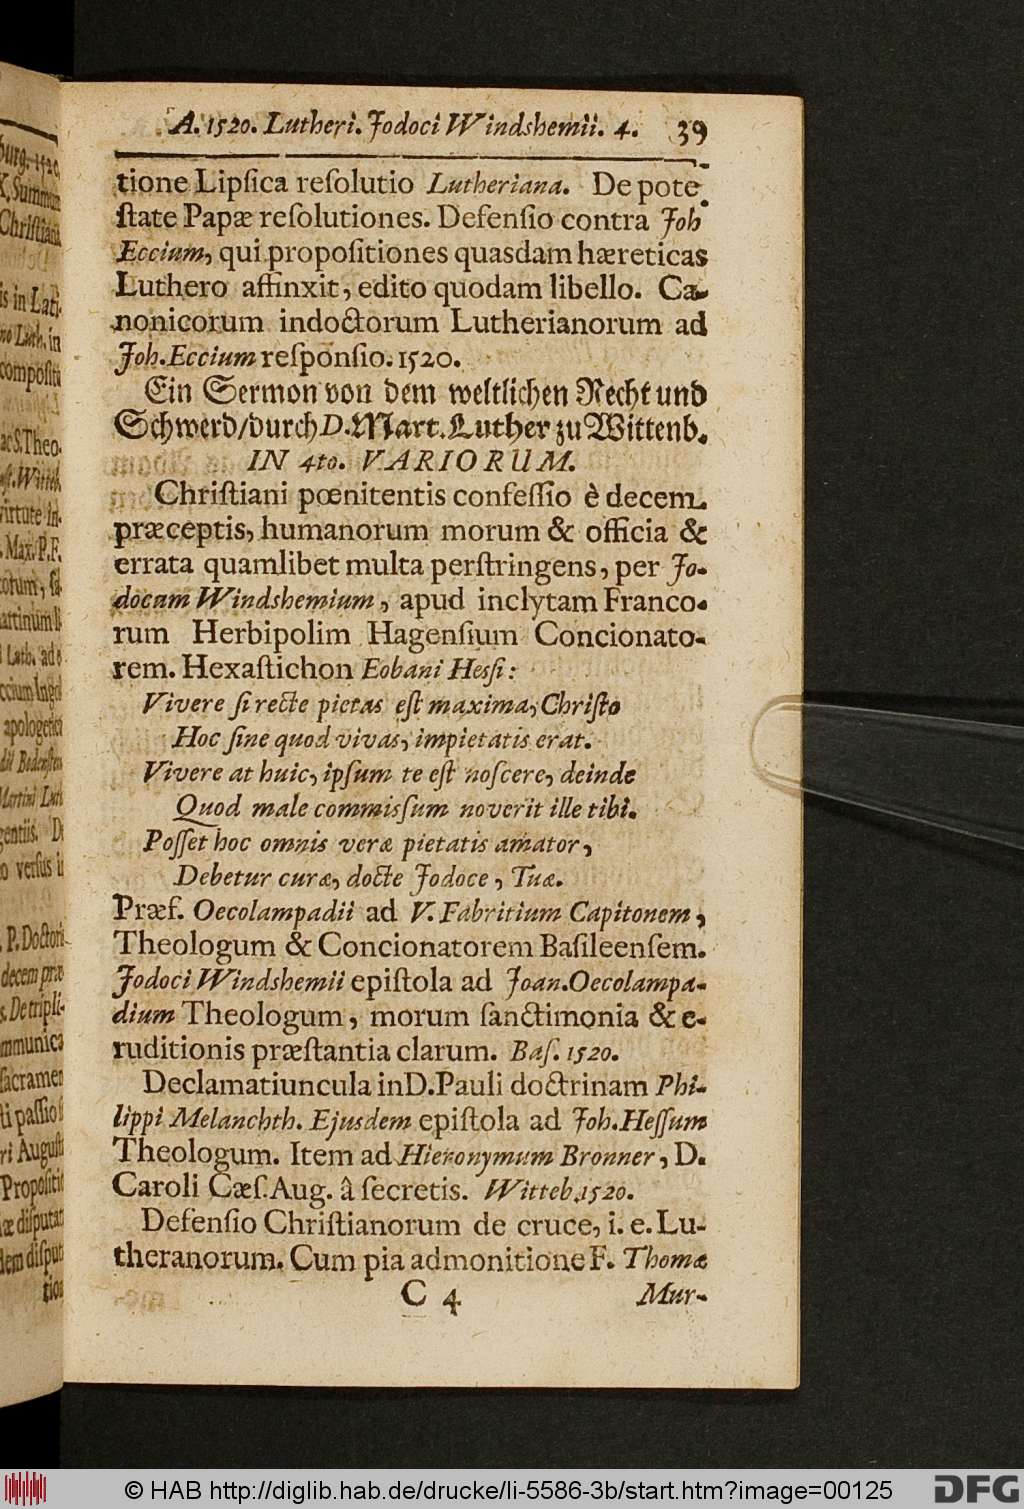 A. 1520. Lutheri. Jodoci Windshemii. 4. 39
tione Lipſica reſolutio Lutheriana. De pote-
ſtate Papæ reſolutiones. Defenſio contra Joh.
Eccium, qui propoſitiones quasdam hæreticas
Luthero affinxit, edito quodam libello. Ca-
nonicorum indoctorum Lutherianorum ad
Joh. Eccium reſponſio. 1520.
Ein Sermon von dem weltlichen Recht und
Schwerd/durch D. Mart. Luther zu Wittenb.
IN 4to. VARIORUM.
Chriſtiani pœnitentis confeſſio è decem
præceptis, humanorum morum & officia &
errata quamlibet multa perſtringens, per Jo-
docum Windshemium, apud inclytam Franco-
rum Herbipolim Hagenſium Concionato-
rem. Hexaſtichon Eobani Hesſi:
Vivere ſi recte pietas eſt maxima, Chriſto
Hoc ſine quod vivas, impietatis erat.
Vivere at huic, ipſum te eſt noſcere, deinde
Quod male commisſum noverit ille tibi.
Poſſet hoc omnis veræ pietatis amator,
Debetur curæ, docte Jodoce, Tuæ.
Præf. Oecolampadii ad V. Fabritium Capitonem,
Theologum & Concionatorem Baſileenſem.
Jodoci Windshemii epiſtola ad Joan. Oecolampa-
dium Theologum, morum ſanctimonia & e-
ruditionis præſtantia clarum. Baſ. 1520.
Declamatiuncula in D. Pauli doctrinam Phi-
lippi Melanchth. Ejusdem epiſtola ad Joh. Heſſum
Theologum. Item ad Hieronymum Bronner, D.
Caroli Cæſ. Aug. â ſecretis. Witteb. 1520.
Defenſio Chriſtianorum de cruce, i. e. Lu-
theranorum. Cum pia admonitione F. Thomæ
C 4 Mur-
© HAB http://diglib.hab.de/drucke/li-5586-3b/start.htm?image=00125
DFG